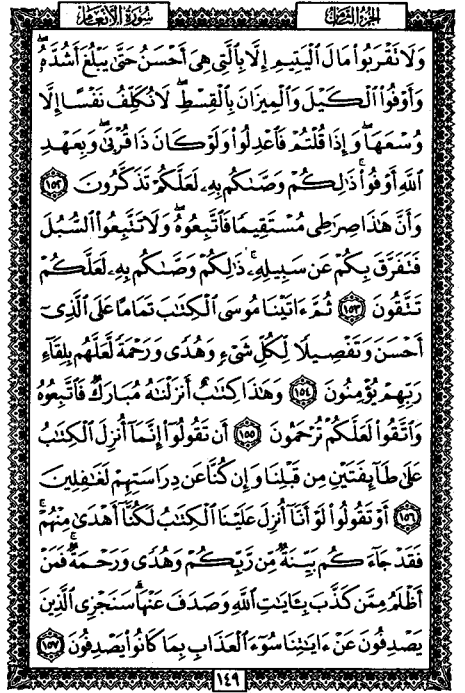 الجزء الثامن
سورة الأنعام
وَلَا نَقْرَبُوا۟ مَالَ ٱلْيَتِيمِ إِلَّا بِٱلَّتِى هِىَ أَحْسَنُ حَتَّىٰ يَبْلُغَ أَشُدَّهُۥ ۖ
وَأَوْفُوا۟ ٱلْكَيْلَ وَٱلْمِيزَانَ بِٱلْقِسْطِ ۖ لَا نُكَلِّفُ نَفْسًا إِلَّا
وُسْعَهَا ۖ وَإِذَا قُلْتُمْ فَٱعْدِلُوا۟ وَلَوْ كَانَ ذَا قُرْبَىٰ ۖ وَبِعَهْدِ
ٱللَّهِ أَوْفُوا۟ ۚ ذَٰلِكُمْ وَصَّىٰكُم بِهِۦ لَعَلَّكُمْ تَذَكَّرُونَ ١٥٢
وَأَنَّ هَٰذَا صِرَٰطِى مُسْتَقِيمًا فَٱتَّبِعُوهُ ۖ وَلَا تَتَّبِعُوا۟ ٱلسُّبُلَ
فَتَفَرَّقَ بِكُمْ عَن سَبِيلِهِۦ ۚ ذَٰلِكُمْ وَصَّىٰكُم بِهِۦ لَعَلَّكُمْ
تَتَّقُونَ ١٥٣ ثُمَّ ءَاتَيْنَا مُوسَى ٱلْكِتَٰبَ تَمَامًا عَلَى ٱلَّذِىٓ
أَحْسَنَ وَتَفْصِيلًا لِّكُلِّ شَىْءٍ وَهُدًى وَرَحْمَةً لَّعَلَّهُم بِلِقَآءِ
رَبِّهِمْ يُؤْمِنُونَ ١٥٤ وَهَٰذَا كِتَٰبٌ أَنزَلْنَٰهُ مُبَارَكٌ فَٱتَّبِعُوهُ
وَٱتَّقُوا۟ لَعَلَّكُمْ تُرْحَمُونَ ١٥٥ أَن تَقُولُوٓا۟ إِنَّمَآ أُنزِلَ ٱلْكِتَٰبُ
عَلَىٰ طَآئِفَتَيْنِ مِن قَبْلِنَا وَإِن كُنَّا عَن دِرَاسَتِهِمْ لَغَٰفِلِينَ
١٥٦ أَوْ تَقُولُوا۟ لَوْ أَنَّآ أُنزِلَ عَلَيْنَا ٱلْكِتَٰبُ لَكُنَّآ أَهْدَىٰ مِنْهُمْ ۚ
فَقَدْ جَآءَكُم بَيِّنَةٌ مِّن رَّبِّكُمْ وَهُدًى وَرَحْمَةٌ ۚ فَمَنْ
أَظْلَمُ مِمَّن كَذَّبَ بِـَٔايَٰتِ ٱللَّهِ وَصَدَفَ عَنْهَا ۗ سَنَجْزِى ٱلَّذِينَ
يَصْدِفُونَ عَنْ ءَايَٰتِنَا سُوٓءَ ٱلْعَذَابِ بِمَا كَانُوا۟ يَصْدِفُونَ ١٥٧
١٤٩